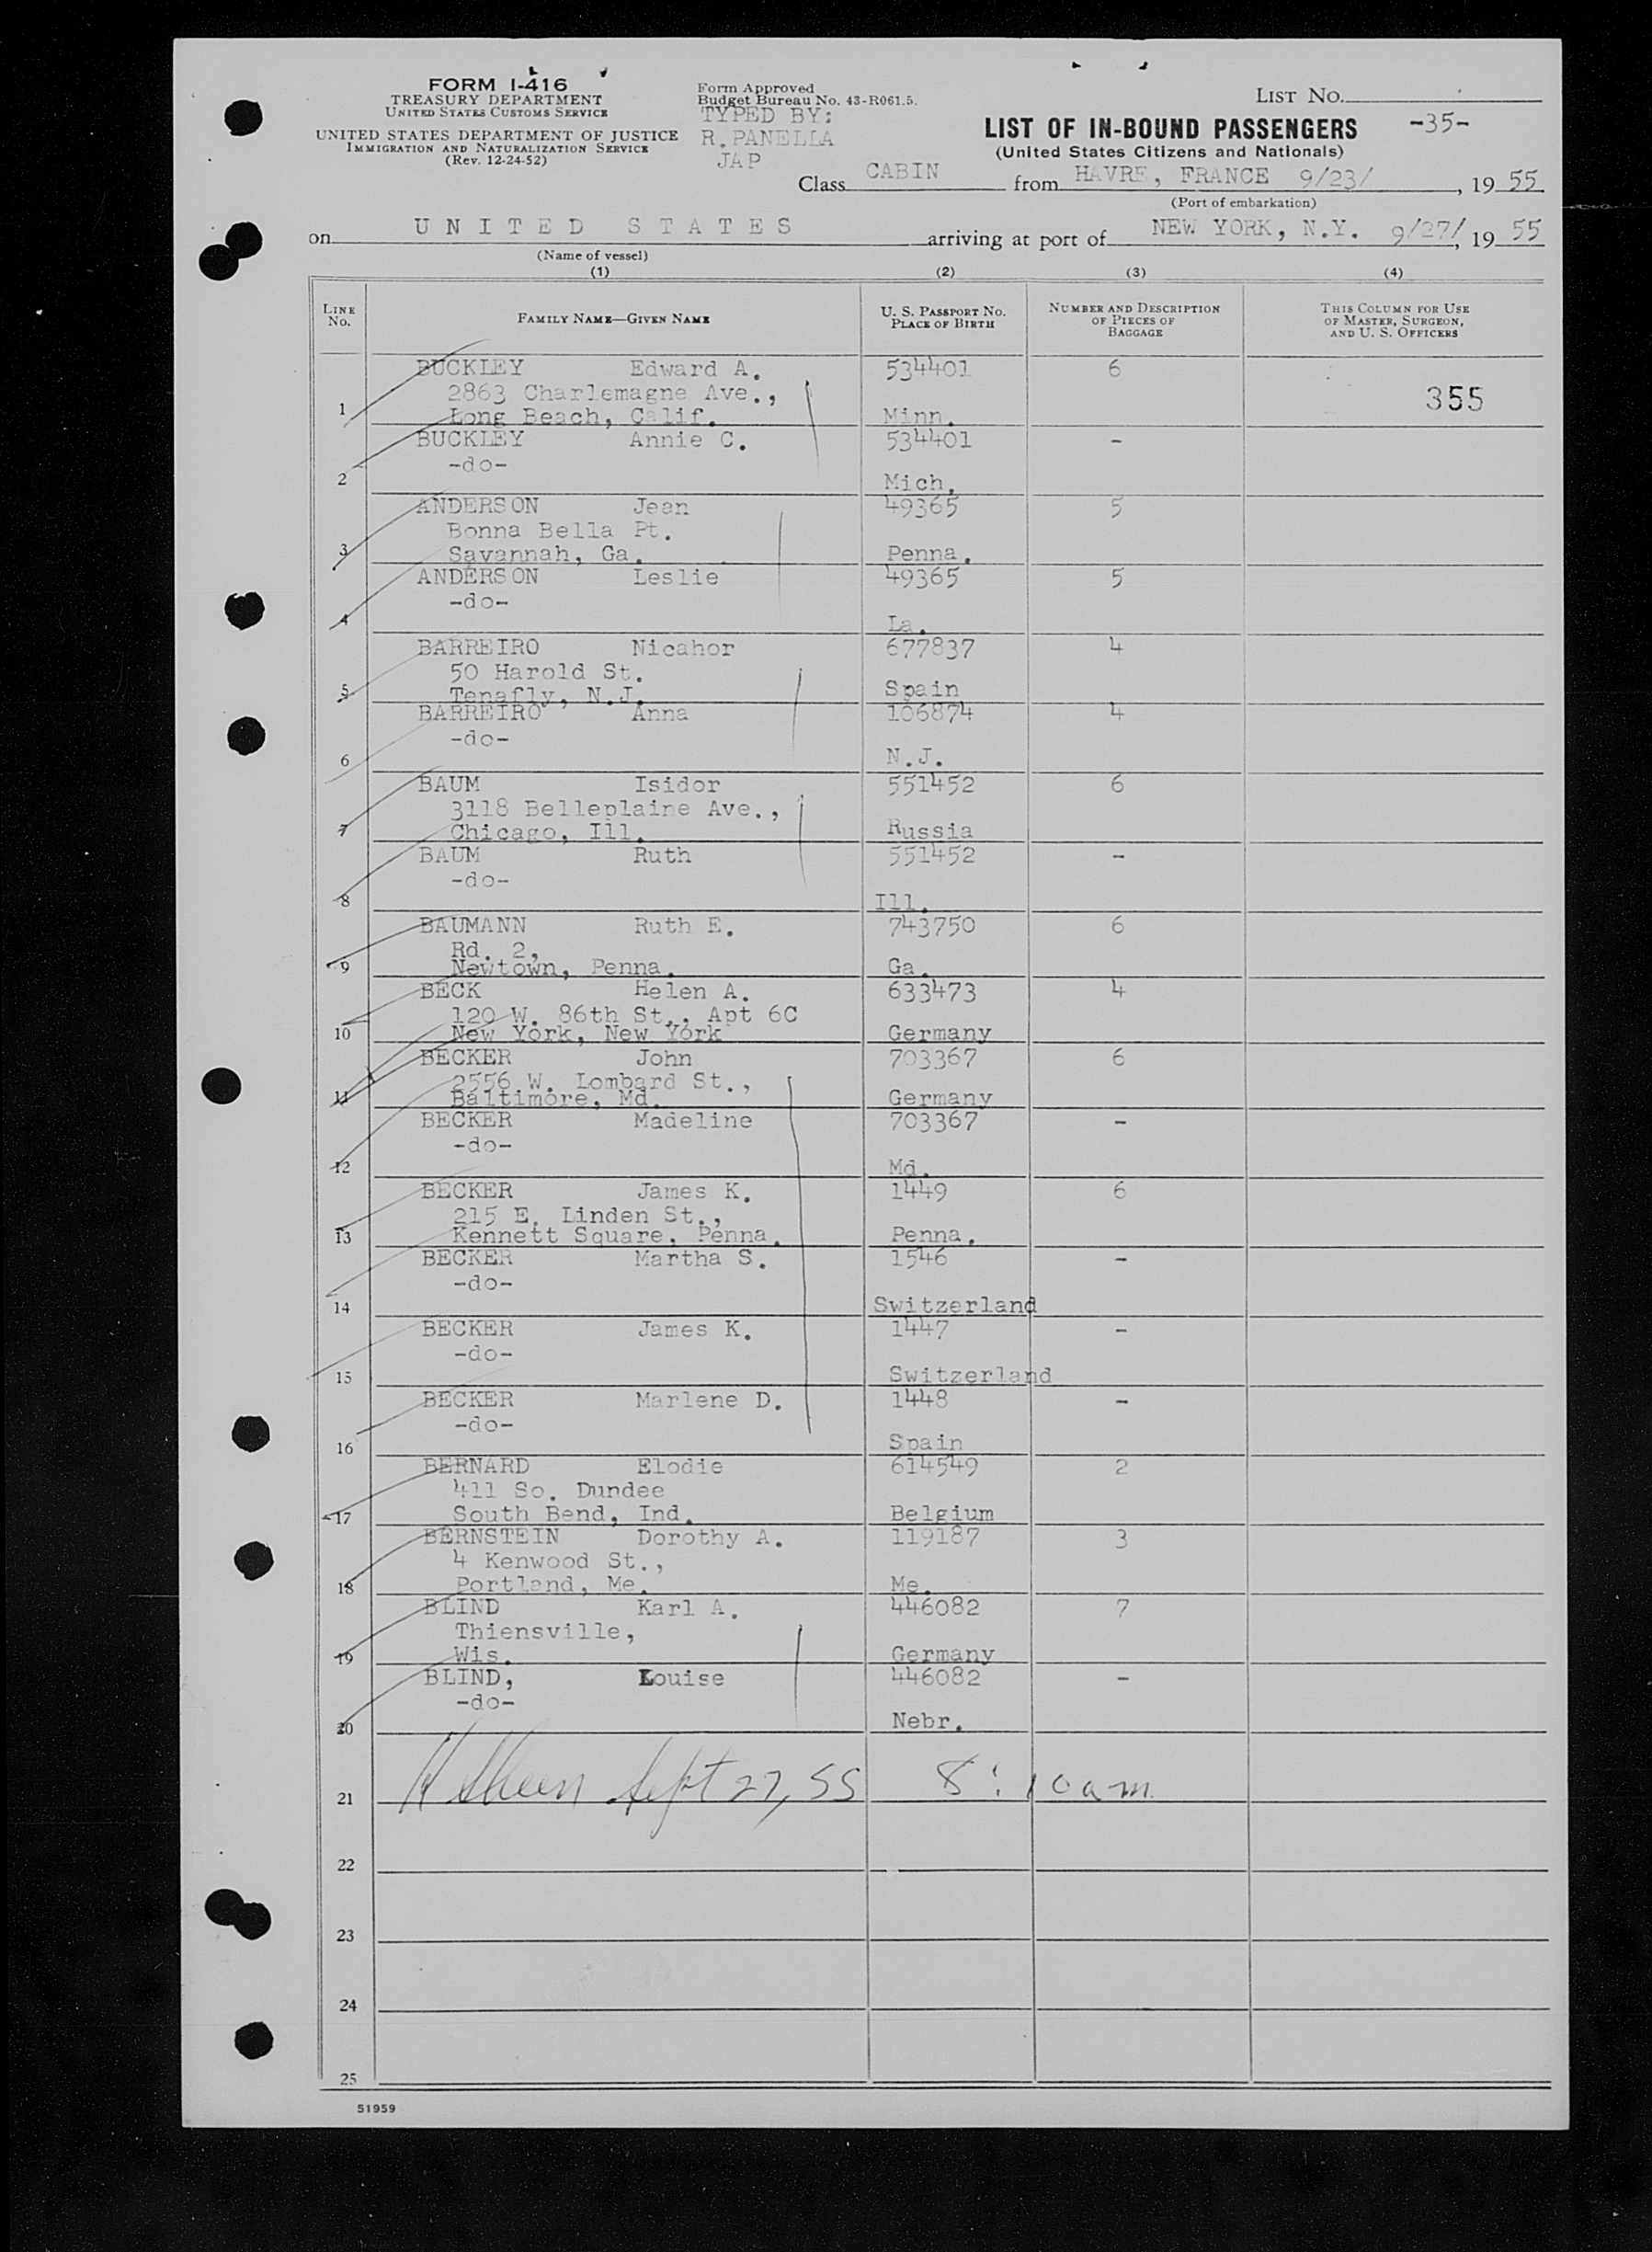 FORM I-416
TREASURY DEPARTMENT
UNITED STATES CUSTOMS SERVICE
UNITED STATES DEPARTMENT OF JUSTICE
IMMIGRATION AND NATURALIZATION SERVICE
(Rev. 12-24-52)
Form Approved
Budget Bureau No. 43-R061.5.
TYPED BY:
R. PANELLA
JAP
LIST NO.
-35-
LIST OF IN-BOUND PASSENGERS
(United States Citizens and Nationals)
Class CABIN from HAVRE, FRANCE 9/23/, 1955
(Port of embarkation)
on UNITED STATES arriving at port of NEW YORK, N.Y. 9/27/, 1955
(Name of vessel)
(1) (2) (3) (4)
LINE NO. FAMILY NAME—GIVEN NAME U. S. PASSPORT NO. PLACE OF BIRTH NUMBER AND DESCRIPTION OF PIECES OF BAGGAGE THIS COLUMN FOR USE OF MASTER, SURGEON, AND U. S. OFFICERS
BUCKLEY Edward A. 534401 6
2863 Charlemagne Ave., 355
1 Long Beach, Calif. Minn.
BUCKLEY Annie C. 534401 -
-do-
2 Mich.
ANDERSON Jean 49365 5
Bonna Bella Pt.
3 Savannah, Ga. Penna.
ANDERSON Leslie 49365 5
-do-
4 La.
BARREIRO Nicahor 677837 4
50 Harold St.
5 Tenafly, N.J. Spain
BARREIRO Anna 106874 4
-do-
6 N.J.
BAUM Isidor 551452 6
3118 Belleplaine Ave.,
7 Chicago, Ill. Russia
BAUM Ruth 551452 -
-do-
8 Ill.
BAUMANN Ruth E. 743750 6
Rd. 2,
9 Newtown, Penna. Ga.
BECK Helen A. 633473 4
120 W. 86th St., Apt 6C
10 New York, New York Germany
BECKER John 703367 6
2556 W. Lombard St.,
11 Baltimore, Md. Germany
BECKER Madeline 703367 -
-do-
12 Md.
BECKER James K. 1449 6
215 E. Linden St.,
13 Kennett Square, Penna. Penna.
BECKER Martha S. 1546 -
-do-
14 Switzerland
BECKER James K. 1447 -
-do-
15 Switzerland
BECKER Marlene D. 1448 -
-do-
16 Spain
BERNARD Elodie 614549 2
411 So. Dundee
17 South Bend, Ind. Belgium
BERNSTEIN Dorothy A. 119187 3
4 Kenwood St.,
18 Portland, Me. Me.
BLIND Karl A. 446082 7
Thiensville,
19 Wis. Germany
BLIND, Louise 446082 -
-do-
20 Nebr.
21 Sept 27, 55 8:10 am
22
23
24
25
51959